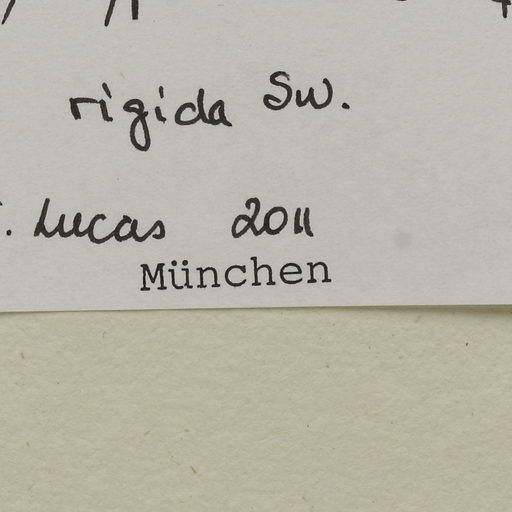 rigida Sw.
. Lucas 2011
München